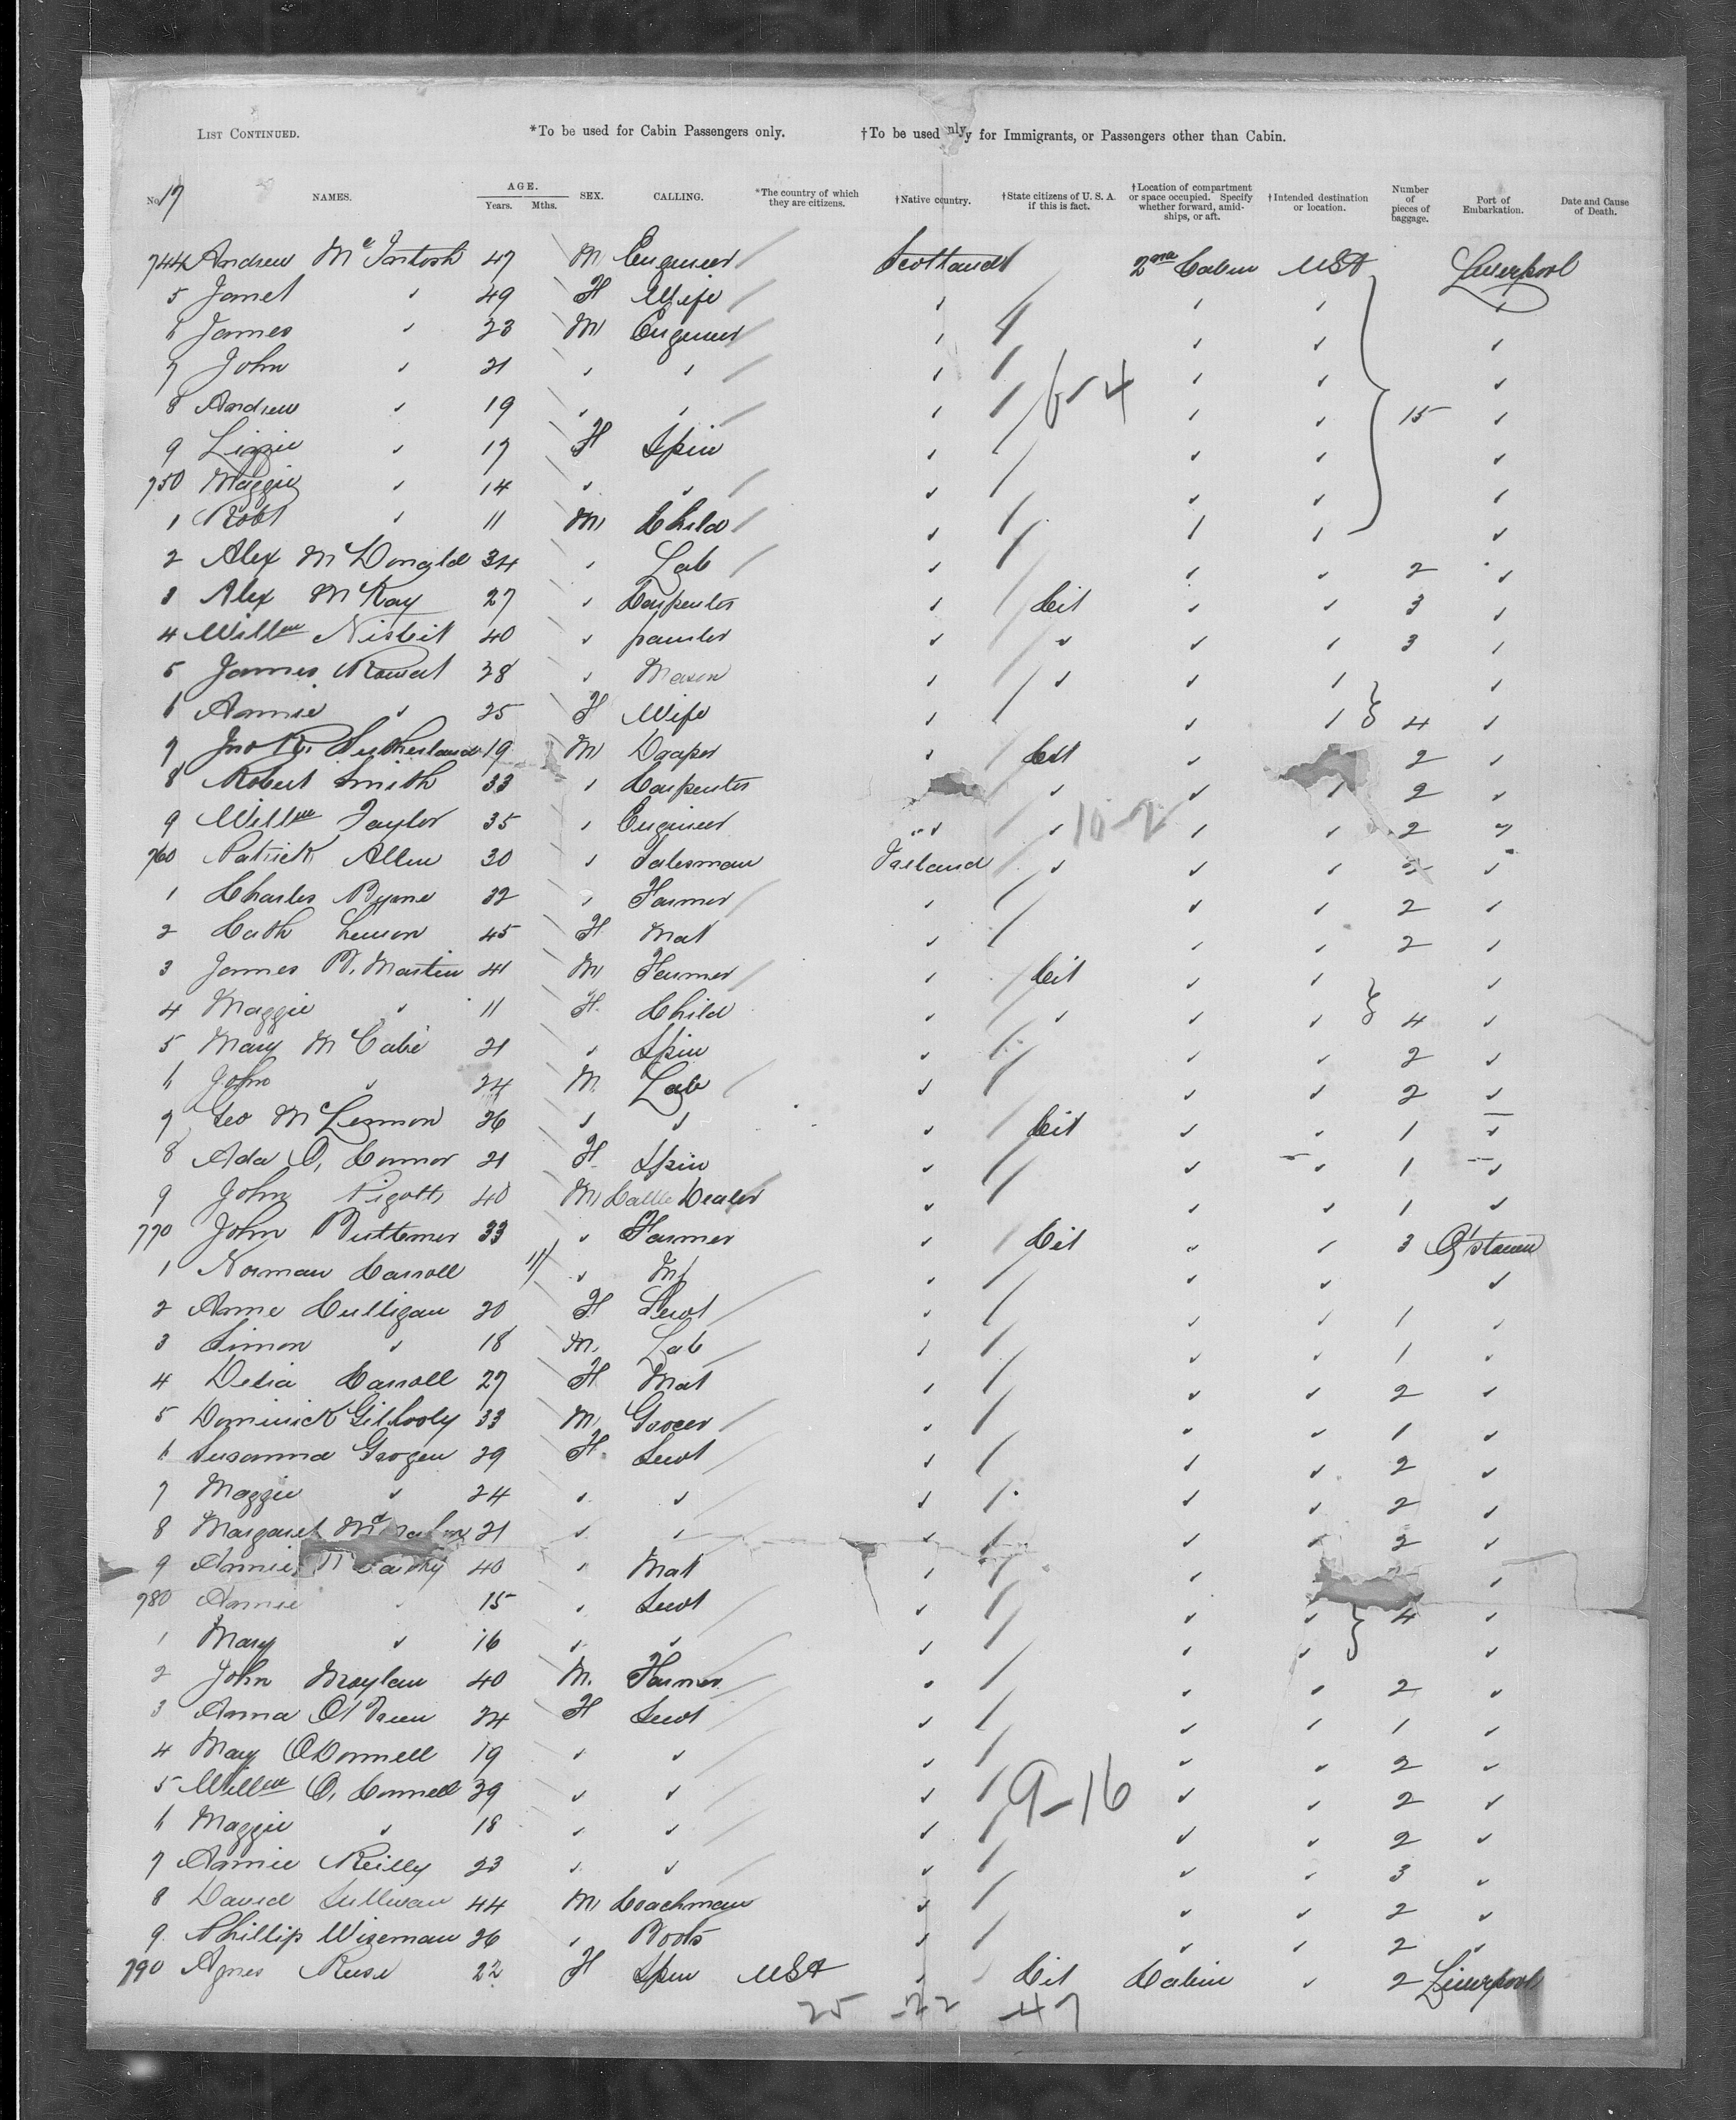 LIST CONTINUED. *To be used for Cabin Passengers only. †To be used nly y for Immigrants, or Passengers other than Cabin.
No 17 NAMES. AGE. Years. Mths. SEX. CALLING. *The country of which they are citizens. †Native country. †State citizens of U. S. A. if this is fact. †Location of compartment or space occupied. Specify whether forward, amidships, or aft. †Intended destination or location. Number of pieces of baggage. Port of Embarkation. Date and Cause of Death.
744 Andrew McIntosh 47 M Engineer Scotland 2nd Cabin USA Liverpool
5 Janet " 49 F Wife " " " "
6 James " 23 M Engineer " " " "
7 John " 21 " " " " " "
8 Andrew " 19 " " " 6-4 " " 15 "
9 Lizzie " 17 F Spin " " " "
750 Maggie " 14 " " " " " "
1 Robt " 11 M Child " " " "
2 Alex McDonald 34 " Lab " " " 2 "
3 Alex McKay 27 " Carpenter " Cit " " 3 "
4 Willm Nisbit 40 " painter " " " " 3 "
5 James Rowat 28 " Mason " " " " "
6 Annie " 25 F Wife " " " 4 "
7 Jno Sutherland 19 M Draper " Cit " 2 "
8 Robert Smith 33 " Carpenter " " " 2 "
9 Willm Taylor 35 " Engineer " " 10-2 " " 2 "
760 Patrick Allen 30 " Salesman Ireland " " " "
1 Charles Byrne 32 " Farmer " " " 2 "
2 Cath 45 F Mat " " " 2 "
3 James B. Martin 41 M Farmer " Cit " " "
4 Maggie " 11 F Child " " " " 4 "
5 Mary McCabe 21 " Spin " " " 2 "
6 John " 24 M Lab " " " 2 "
7 Geo McLennon 26 " " " Cit " " 1 "
8 Ada O, Connor 21 F Spin " " " 1 "
9 John Pigott 40 M Cattle Dealer " " " 1 "
770 John Buttemer 33 " Farmer " Cit " " 3 Q'stown
1 Norman Carroll 11 " Inf " " " "
2 Anne Culligan 20 F Servt " " " 1 "
3 Simon " 18 M Lab " " " 1 "
4 Delia Carroll 27 F Mat " " " 2 "
5 Dominick Gilhooly 33 M Grocer " " " 1 "
6 Susanna Grogen 29 F Servt " " " 2 "
7 Maggie " 24 " " " " " 2 "
8 Margaret 21 " " " " " 2 "
9 Annie 40 " Mat " " "
780 Annie " 15 " Servt " " " 4 "
1 Mary " 16 " " " " " "
2 John Moylan 40 M Farmer " " " 2 "
3 Anna O'Brien 24 F Servt " " " 1 "
4 Mary O'Donnell 19 " " " " " 2 "
5 Willm O, Connell 29 " " " 9-16 " " 2 "
6 Maggie " 18 " " " " " 2 "
7 Annie Reilly 23 " " " " " 3 "
8 David Sullivan 44 M Coachman " " " 2 "
9 Phillip Wiseman 26 " Boots " " " 2 "
790 Agnes 22 F Spin USA " Cit Cabin " 2 Liverpool
25 -22 -47